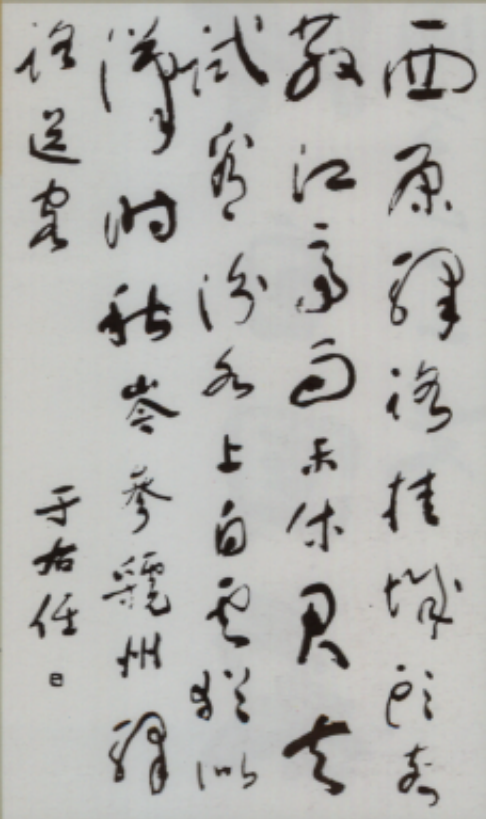 西原驛路挂城頭客
散江亭雨未休君去
試看汾水上白雲猶似
漢時秋岑參虢州驛
路送客 于右任